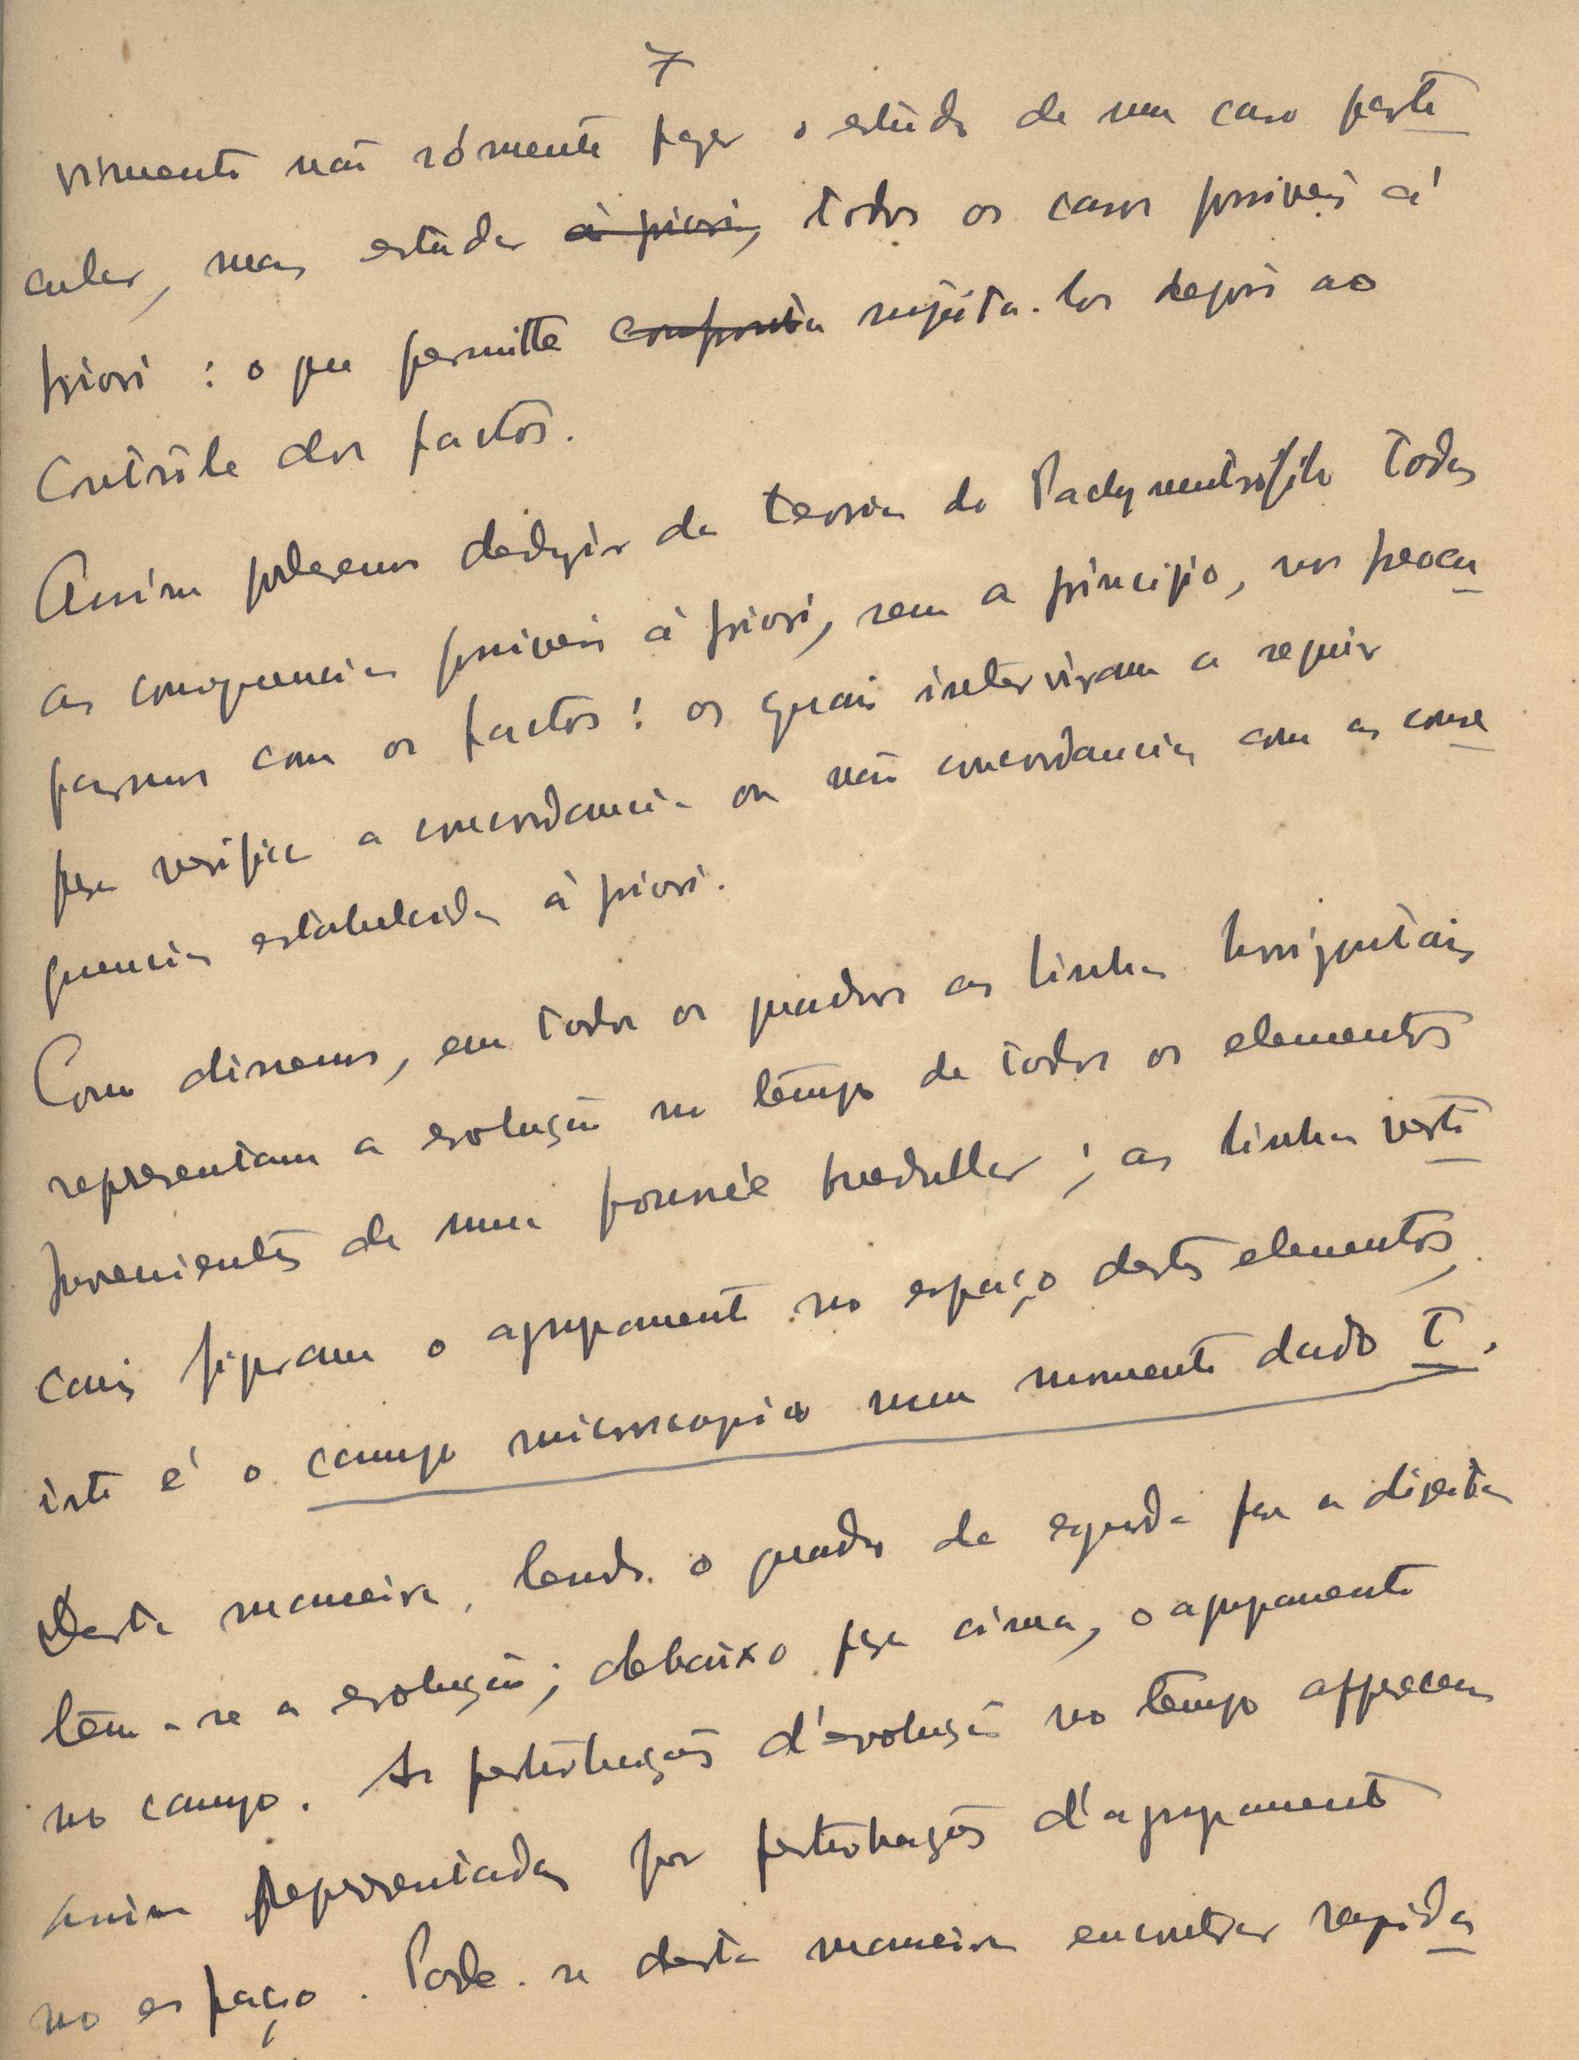 7
vimento não sómente fazer o estudo de um caso parti
cular, mas estudar à priori, todos os casos possiveis á
priori : o que permitte confronta sujeita-los depois ao
Contrôle dos factos.
Assim poderemos deduzir da teoria do Pachyneutrófilo todas
as consequencias possiveis à priori, sem a principio, nos preocu
parmos com os factos: os quais interviram a seguir
para verificar a concordancia ou não concordancia com as conse
quencias estabelecidas à priori.
Como dissemos, em todos os quadros as linhas horizontais
representam a evolução no tempo de todos os elementos
provenientes de uma poussée medullar; as linhas verti
cais figuram o agrupamento no espaço destes elementos,
isto é o campo microscopico num momento dado T.
Desta maneira, lendo o quadro da esquerda para a direita
têm-se a evolução; debaixo para cima, o agrupamento
no campo. As perturbações d'evolução no tempo apparecem
assim representadas por perturbações d'agrupamento
no espaço. Pode-se desta maneira encontrar rapida